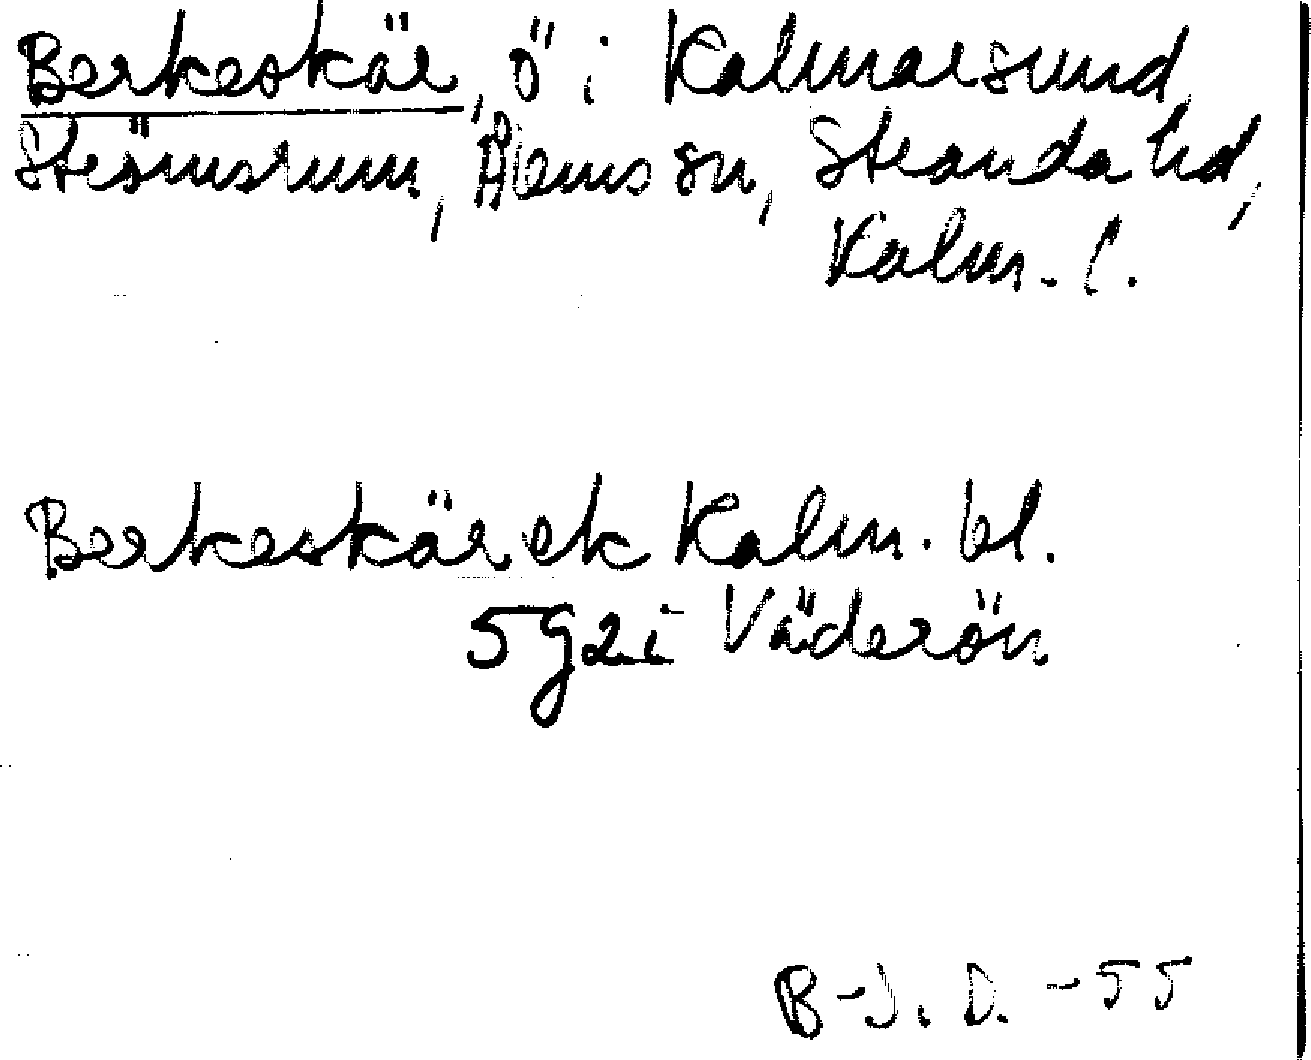 Berkeskär, ö i Kalmarsund,
Strömsrum, Ålems sn, Stranda hd,
Kalm. l.
Berkeskär ek Kalm. bl.
5g2i Väderön
B-J. D. -55